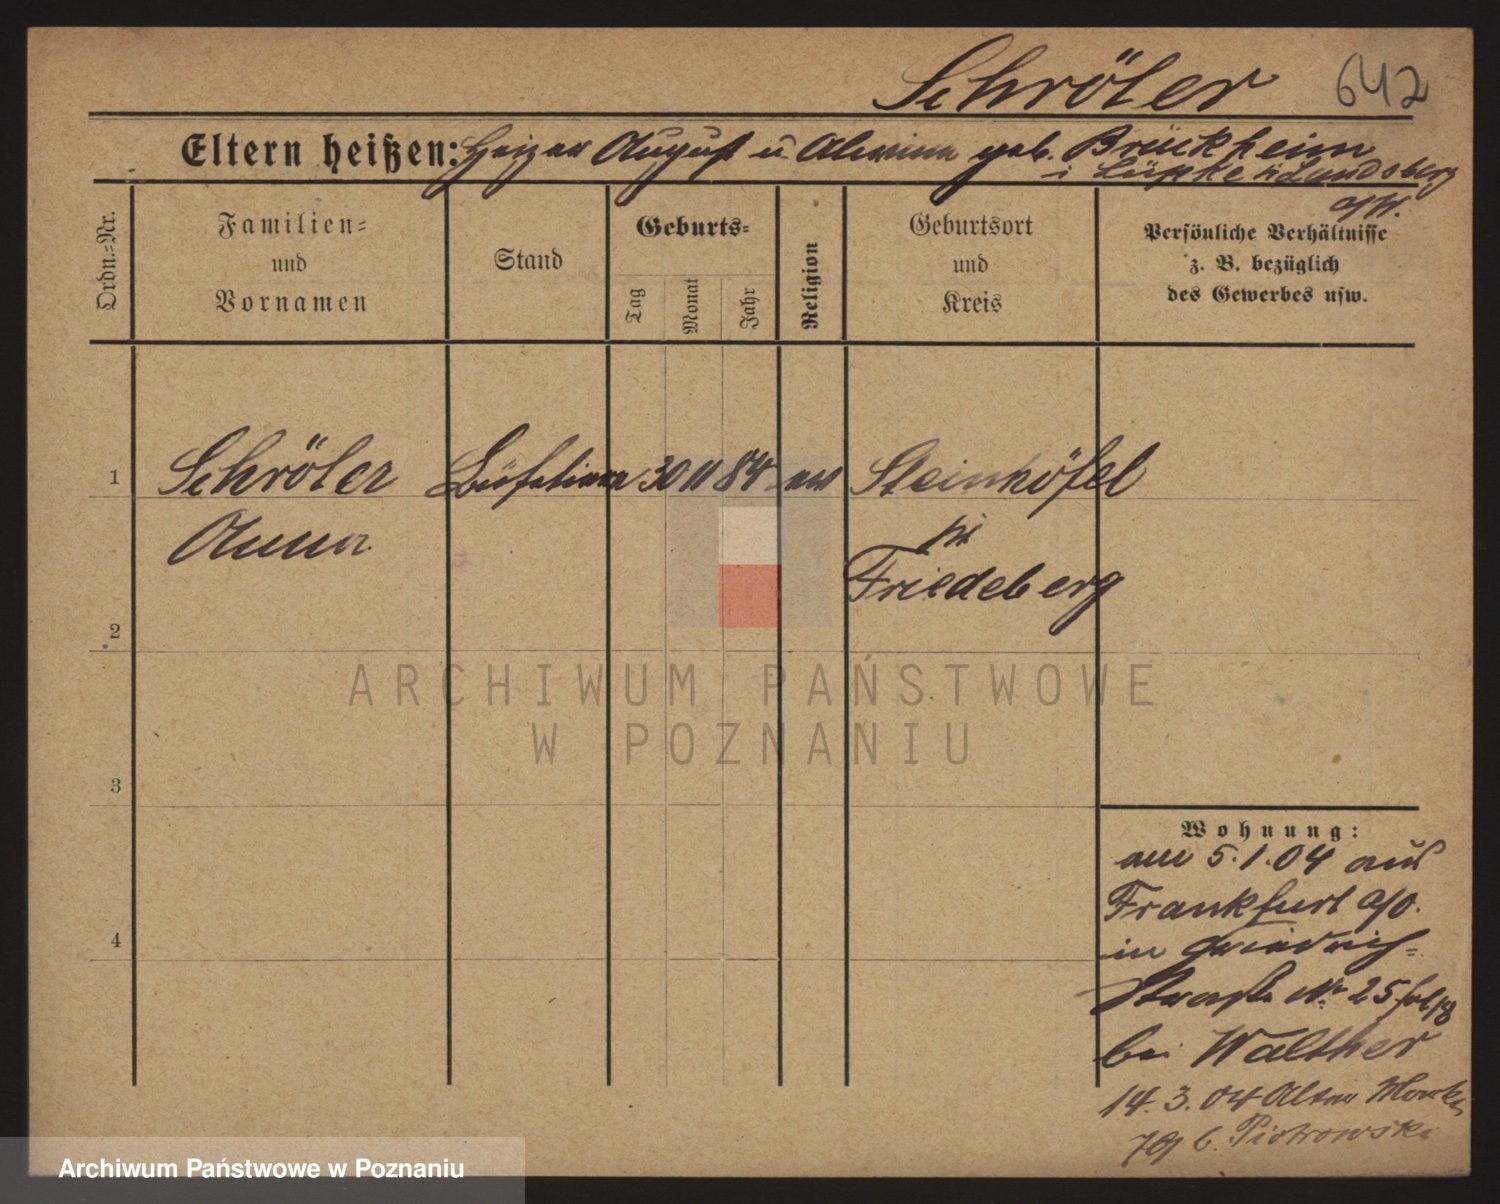 Schröter 642
Eltern heißen: Heizer August u Alwine geb. Brückheim
i Lipke b/Landsberg
a/W.
Ordn.-Nr.
Familien-
und
Vornamen
Stand
Geburts-
Tag
Monat
Jahr
Religion
Geburtsort
und
Kreis
Persönliche Verhältnisse
z. B. bezüglich
des Gewerbes usw.
1 Schröter 30 11 84 ev Steinhöfel
Anna
Friedeberg
2
3
4
Wohnung:
am 5.1.04 aus
Frankfurt a/O.
in Friedrich-
straße Nr 25
bei Walther
14.3.04 Alter Markt
b. Piotrowski
ARCHIWUM PAŃSTWOWE
W POZNANIU
Archiwum Państwowe w Poznaniu